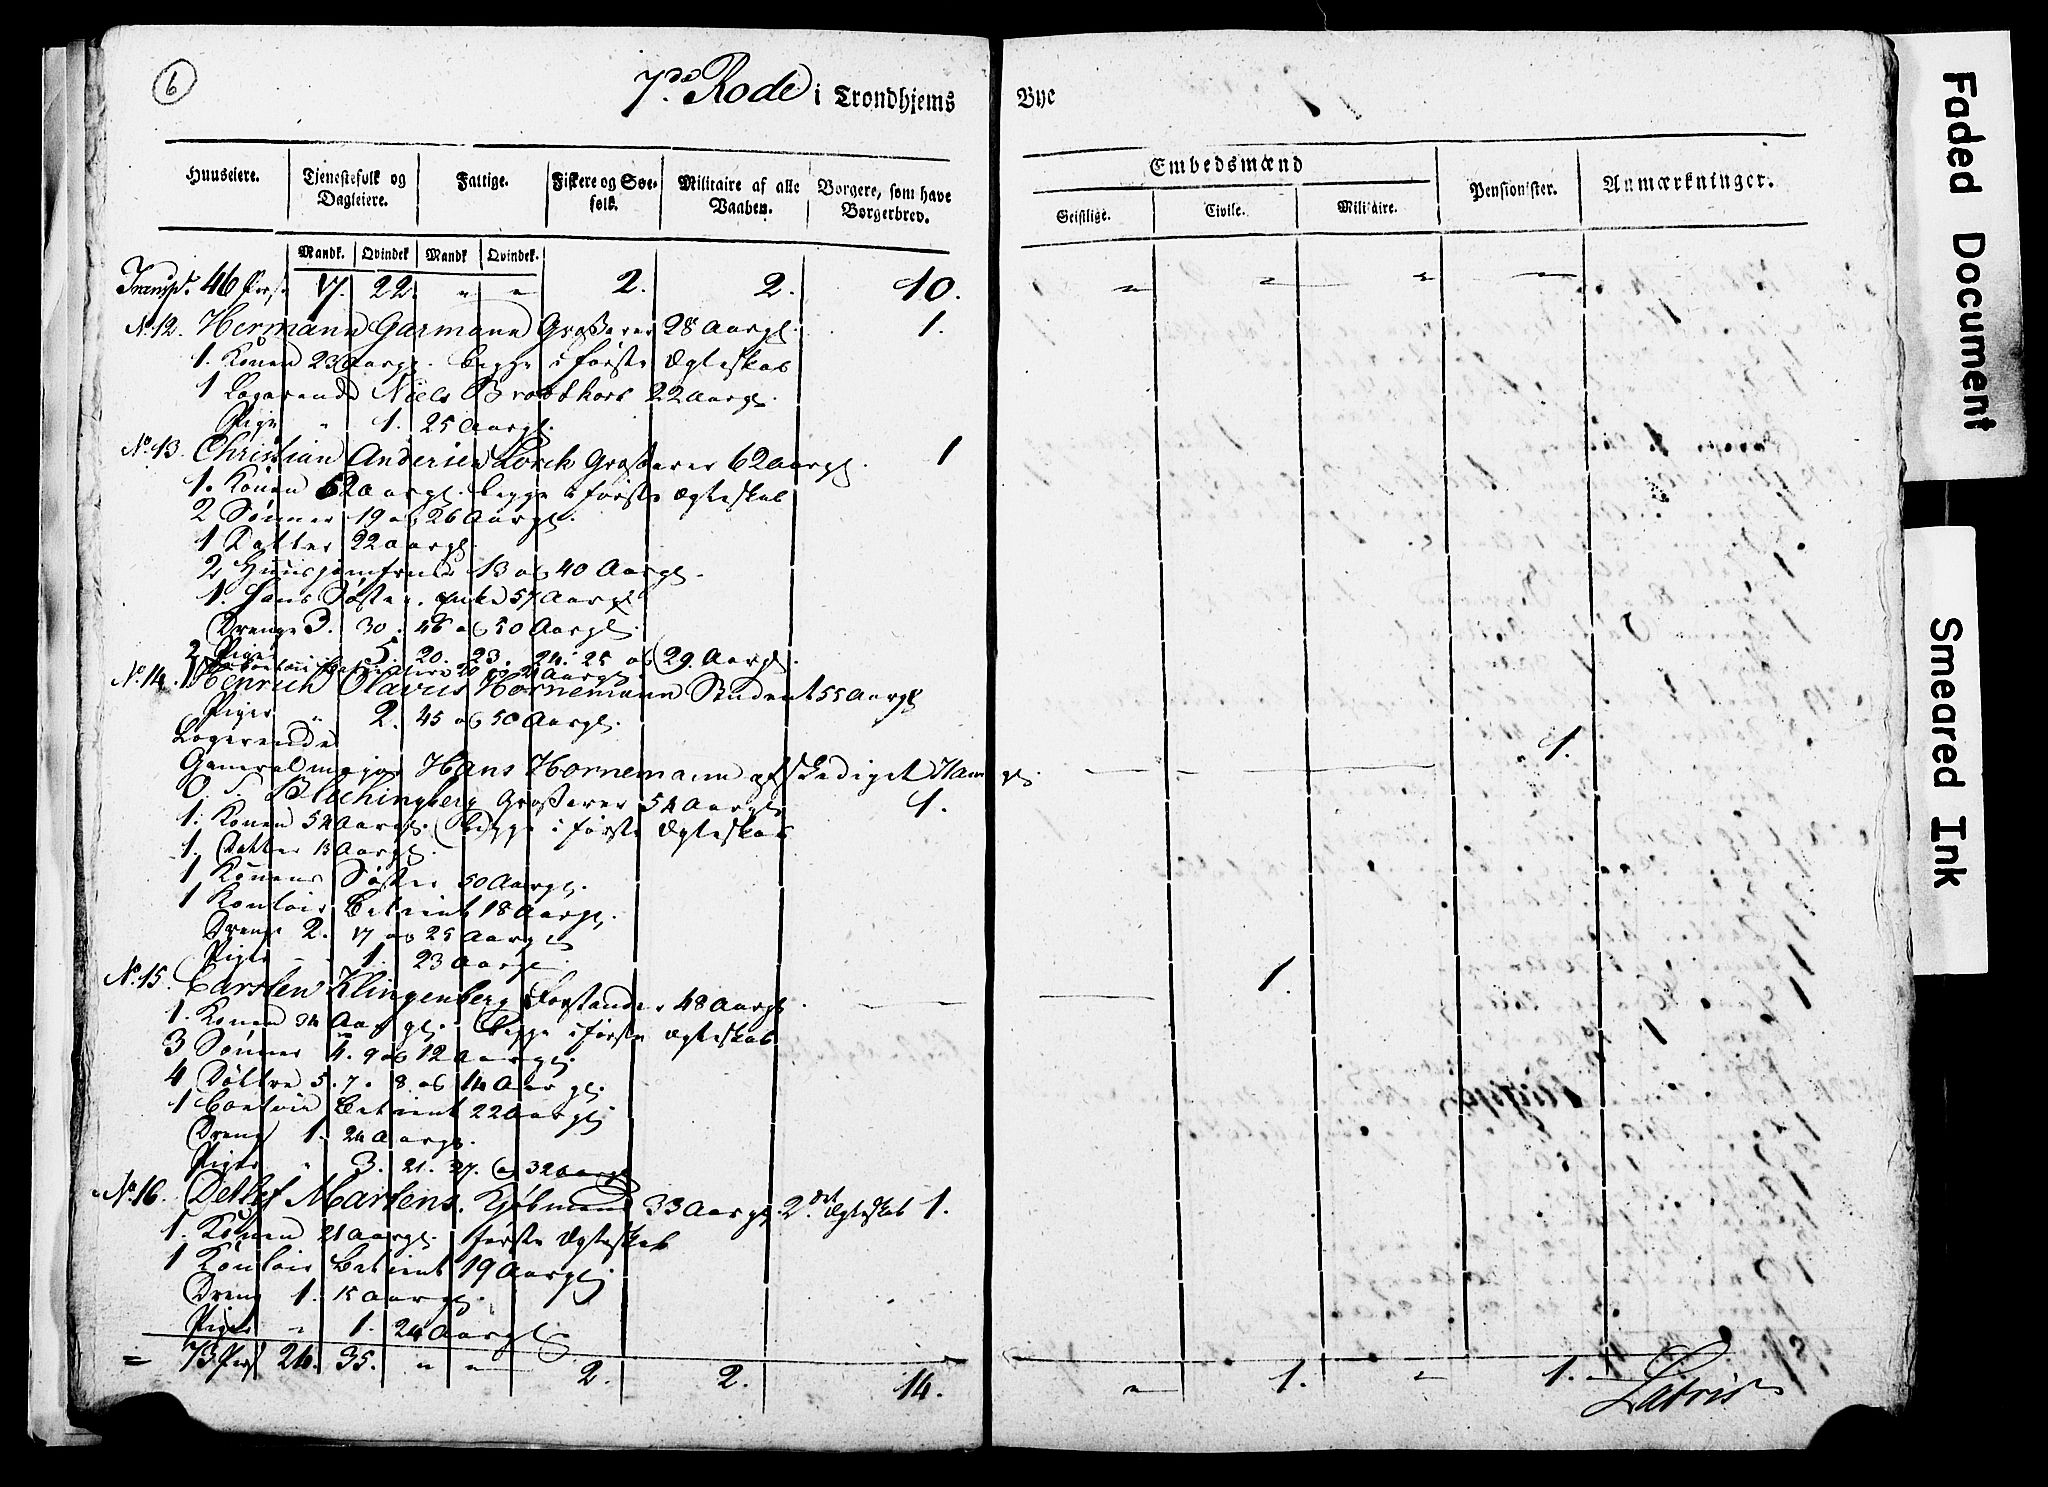 6
7de Rode i Trondhjems Bye
Huuseiere. Tjenestefolk og Dagleiere. Fattige. Fiskere og Søefolk. Militaire af alle Vaaben. Borgere, som have Borgerbrev. Embedsmænd Pensionister. Anmærkninger.
Geistlige. Civile. Militaire.
Mandk. Qvindek Mandk Qvindek.
Transpt. 46 Pers 17. 22. " " 2. 2. 10.
No. 12. Hermann Garmann Grosserer 28 Aargl. 1.
1. Konen 23 Aargl. begge i første Ægteskab
1 Logerende Niels Brodtkorb 22 Aargl.
Pige " 1. 25 Aargl.
No. 13. Christian Andersen Lorck Grosserer 62 Aargl. 1
1. Konen 52 Aargl. begge i første Ægteskab
2 Sønner 19 og 26 Aargl.
1 Datter 22 Aargl.
2 Huusjomfruer 13 og 40 Aargl.
1. Hans Søster, enke 57 Aargl
Drenge 3. 30. 46 og 50 Aargl.
Piger 5. 20. 23. 24. 25 og 29. Aargl.
2 20 og 21 Aargl.
No. 14. 1 Henrich Olavus Hornemann Student 55 Aargl
Piger " 2. 45 og 50 Aargl.
Logerende
General major Hans Hornemann afskediget 1.
O. S. Blechingberg Grosserer 54 Aargl 1.
1. Konen 52 Aargl. Begge i første Ægteskab
1. Datter 13 Aargl.
1 Konens Søster 50 Aargl.
1 Kontoir Betient 18 Aargl.
Drenge 2. 17 og 25 Aargl
Piger " 1. 23 Aargl.
No. 15. Carsten Klingenberg Forstander 48 Aargl 1.
1. Konen 34 Aargl. begge i første Ægteskab
3 Sønner 4. 9 og 12 Aargl.
4 Døttre 5. 7. 8. og 14 Aargl.
1 Contoir Betient 22 Aargl
Dreng 1. 24 Aargl.
Piger " 3. 21. 37. og 32 Aargl
No. 16. Detlef Martens. Kjøbmand 33 Aargl. 2det Ægteskab 1.
1. Konen 21 Aargl. første Ægteskab
1 Kontoir Betient 19 Aargl
Dreng 1. 15 Aargl.
Piger " 1. 24 Aargl
= 73 Pers 24. 35. " " 2. 2. 14. " 1. " 1.
Faded Document
Smeared Ink